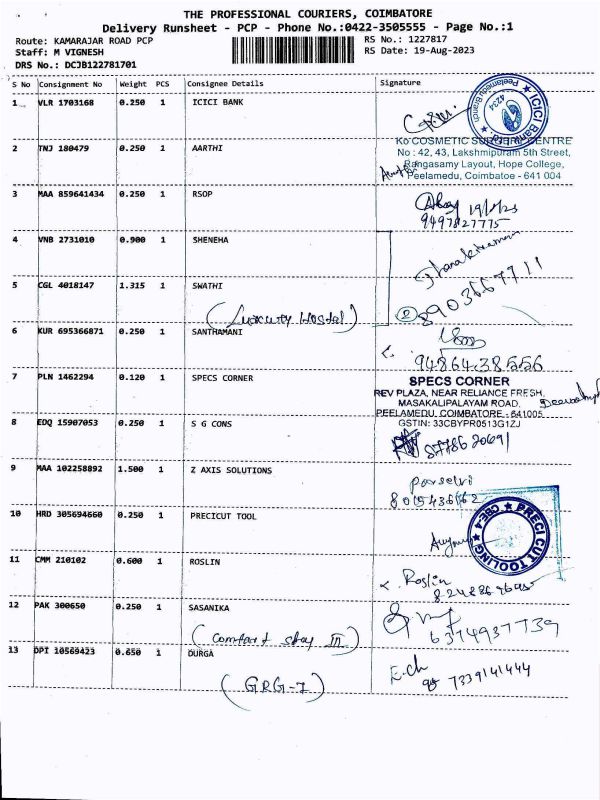 THE PROFESSIONAL COURIERS, COIMBATORE
Delivery Runsheet - PCP - Phone No.:0422-3505555 - Page No.:1
Route: KAMARAJAR ROAD PCP
RS No.: 1227817
Staff: M VIGNESH
RS Date: 19-Aug-2023
DRS No.: DCJB122781701
S No Consignment No Weight PCS Consignee Details Signature
1 VLR 1703168 0.250 1 ICICI BANK
ICICI Bank Ltd. Peelamedu Branch 4234
2 TNJ 180479 0.250 1 AARTHI
COSMETIC CENTRE
No : 42, 43, Lakshmipuram 5th Street,
Rangasamy Layout, Hope College,
Peelamedu, Coimbatoe - 641 004
3 MAA 859641434 0.250 1 RSOP
19/8/23
9497827775
4 VNB 2731010 0.900 1 SHENEHA
Janakiraman
5 CGL 4018147 1.315 1 SWATHI
(Luxury Hostel)
2 8903667711
6 KUR 695366871 0.250 1 SANTHAMANI
9486438556
7 PLN 1462294 0.120 1 SPECS CORNER
SPECS CORNER
REV PLAZA, NEAR RELIANCE FRESH,
MASAKALIPALAYAM ROAD,
PEELAMEDU, COIMBATORE - 641005
GSTIN: 33CBYPR0513G1ZJ
8 EDQ 15907053 0.250 1 S G CONS
8778620691
9 MAA 102258892 1.500 1 Z AXIS SOLUTIONS
10 HRD 305694660 0.250 1 PRECICUT TOOL
PRECI CUT TOOLING CBE-4
11 CMM 210102 0.600 1 ROSLIN
Roslin
12 PAK 300650 0.250 1 SASANIKA
(Comfort stay III)
6374937739
13 DPI 10569423 0.650 1 DURGA
(GRG-I)
7339141444